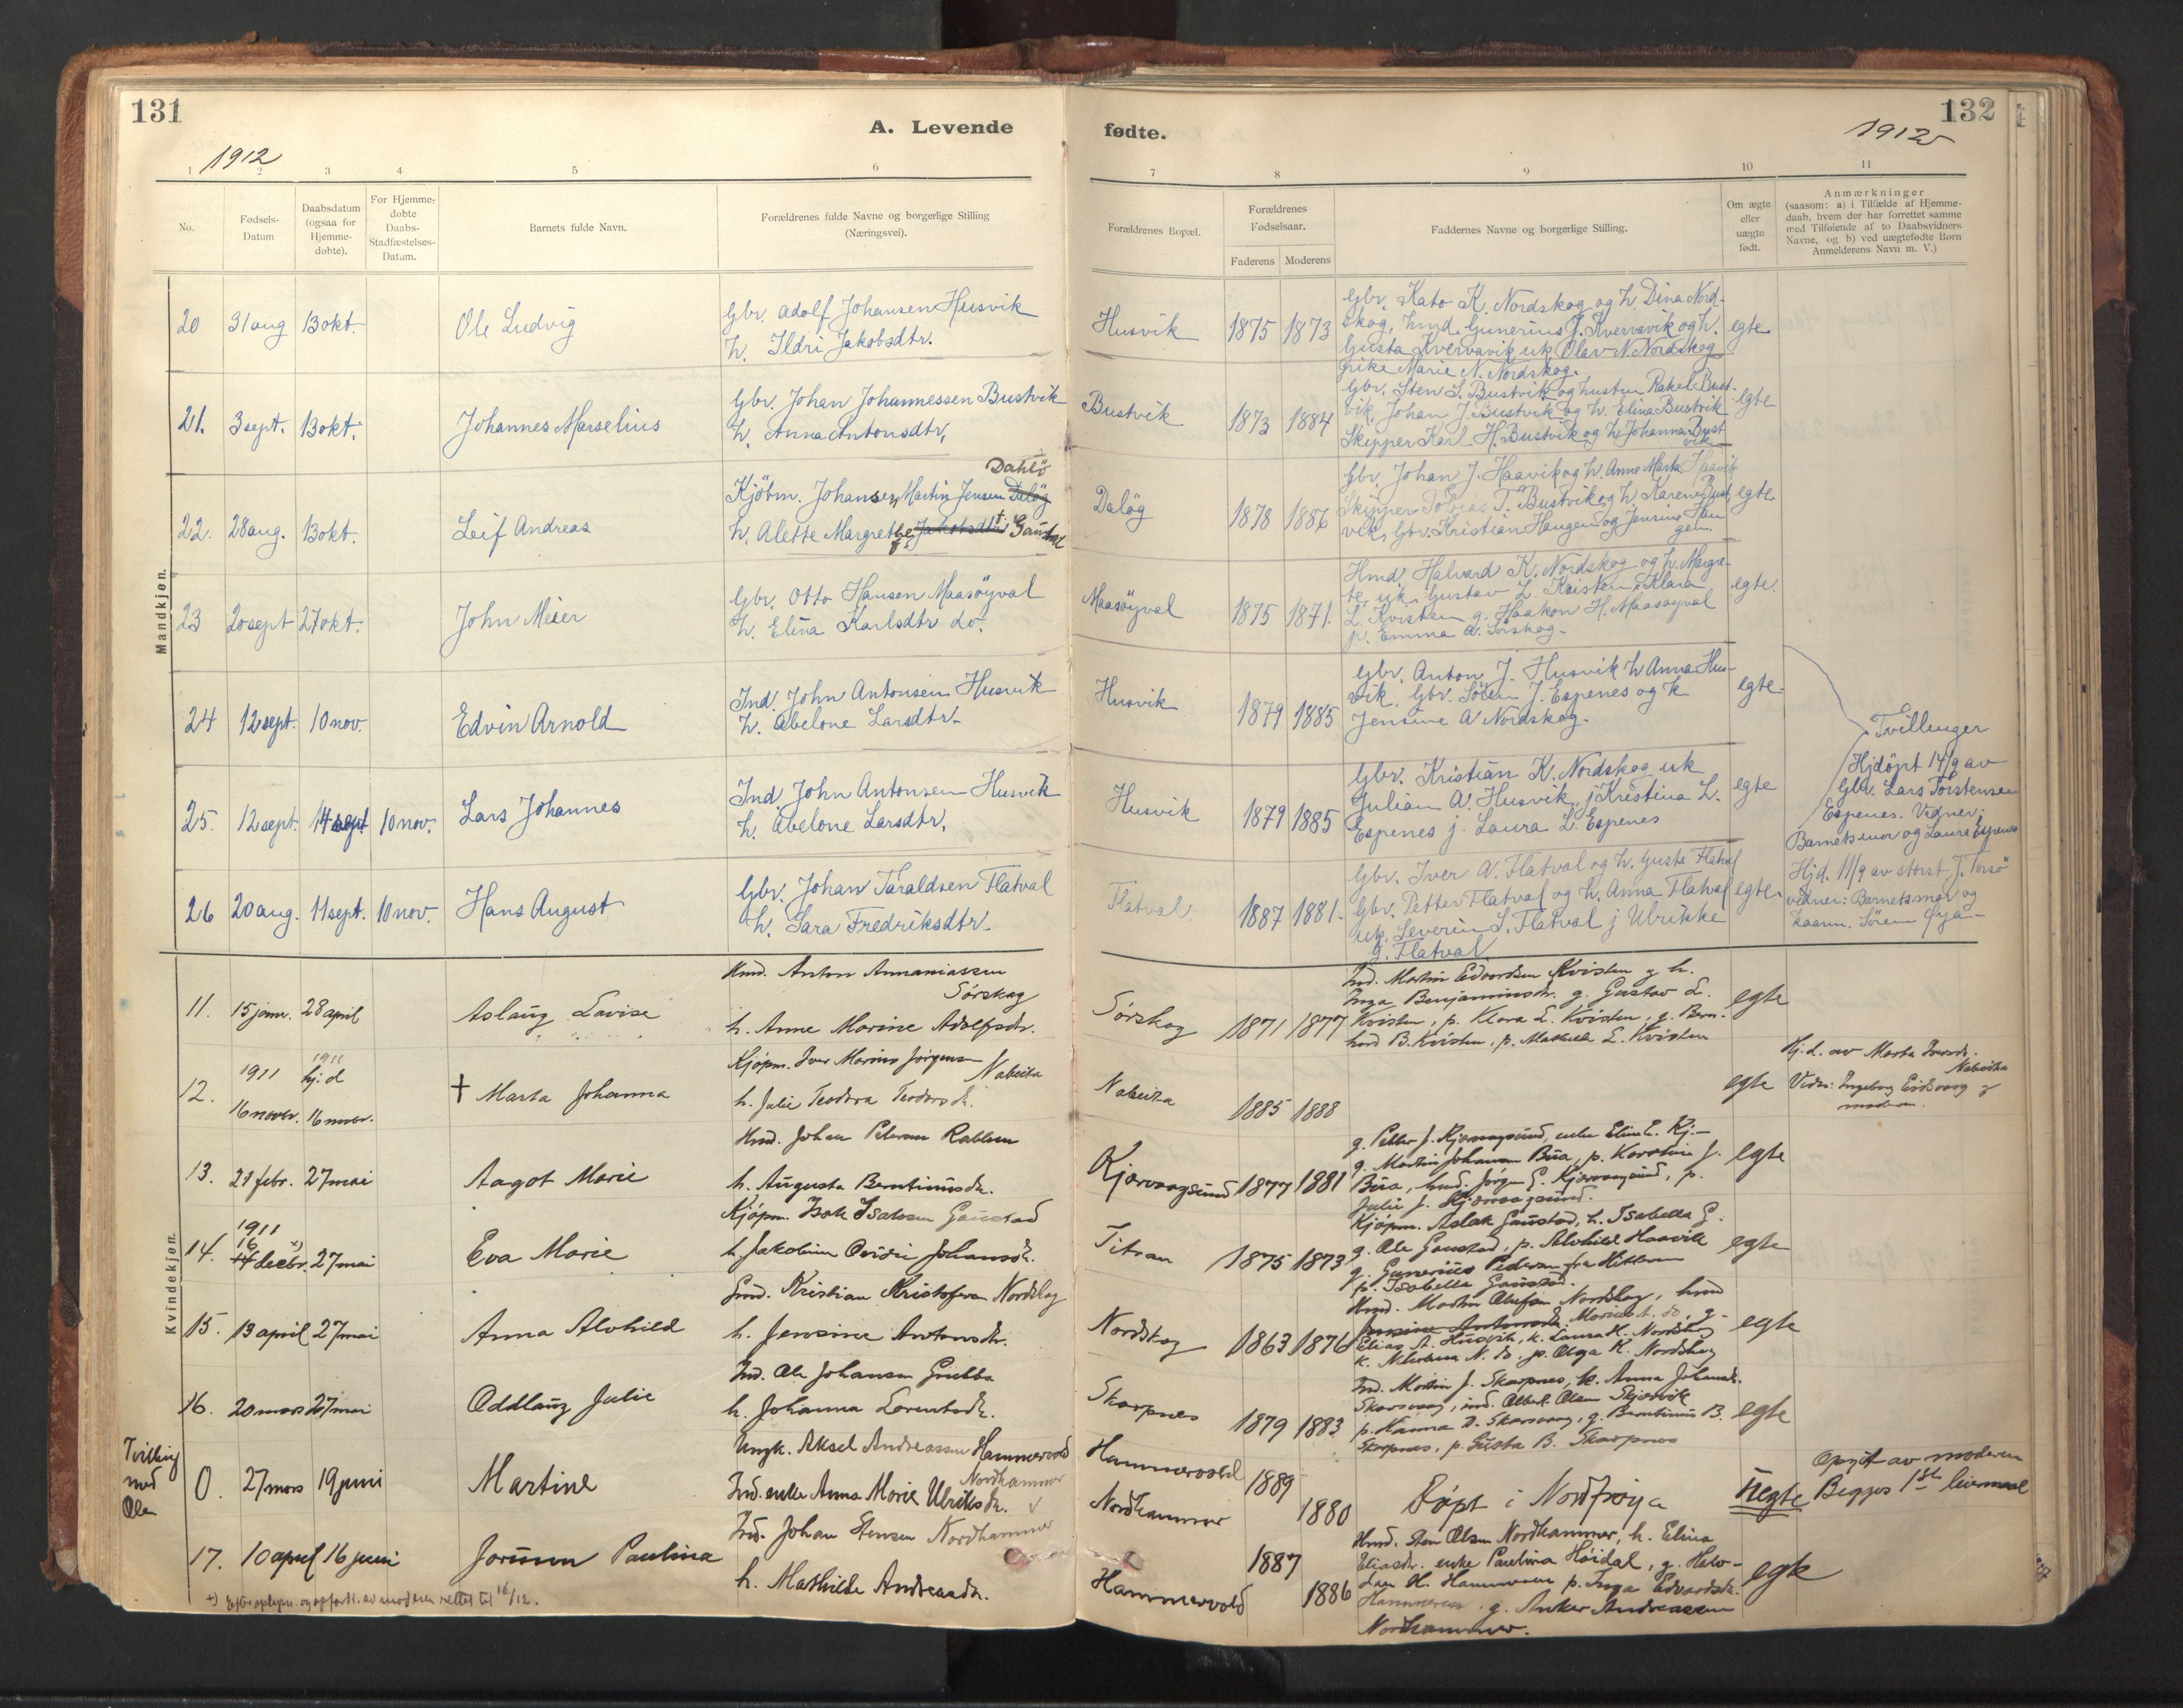 131
A. Levende
fødte.
132
1912
1912
1 2 3 4 5 6
7 8 9 10 11
No.
Fødsels-
Datum
Daabsdatum
(ogsaa for
Hjemme-
døbte).
For Hjemme-
døbte
Daabs-
Stadfæstelses-
Datum.
Barnets fulde Navn.
Forældrenes fulde Navne og borgerlige Stilling
(Næringsvei).
Forældrenes Bopæl.
Forældrenes
Fødselsaar.
Faderens Moderens
Faddernes Navne og borgerlige Stilling.
Om ægte
eller
uægte
født.
Anmærkninger
(saasom: a) i Tilfælde af Hjemme-
daab, hvem der har forrettet samme
med Tilføiende af to Daabsvidners
Navne, og b) ved uægtefødte Børn
Anmelderens Navn m. V.)
Mandkjøn.
20 31 aug 13 okt. Ole Ludvig
Gbr. Adolf Johansen Husvik
h. Ildri Jakobsdtr.
Husvik 1875 1873
Gbr. Kato K. Nordskog og h. Dina Nord-
skog, hmd. Gunerius J. Kvervavik og h.
Gusta Kvervavik uk Olav N. Nordskog
pike Marie N. Nordskog.
egte
21. 3 sept. 13 okt. Johannes Marselius
Gbr. Johan Johannessen Bustvik
h. Anna Antonsdtr.
Bustvik 1873 1884
Gbr. Sten S. Bustvik og hustru Rakel Bust-
vik, Johan J. Bustvik og h. Elina Bustvik
Skipper Karl H. Bustvik og h. Johanna Bust
vik
egte
22. 28 aug. 13 okt. Leif Andreas
Dahlö
Kjöbm. Johan Martin Jensen Dalög
h. Alette Margrethe Jakobsdtr Gaustad
Dalög 1878 1886
Gbr. Johan J. Haavik og h. Anna Marta Haavik
Skipper Tobias T. Bustvik og h. Karen Bust
vik, Gbr. Kristian Haugen og Jensine Hau
gen.
egte.
23 20 sept 27 okt. John Meier
Gbr. Otto Hansen Maasöyval
h. Elina Karlsdtr do.
Maasöyval 1875 1871.
Hmd. Halvard K. Nordskog og h. Margre-
te, uk. Gustav L. Kvisten p. Klara
L. Kvisten g. Haakon H. Maasöyval
p. Emma A. Sörskog.
egte.
24 12 sept. 10 nov. Edvin Arnold
Ind. John Antonsen Husvik
h. Abelone Larsdtr.
Husvik 1879 1885
Gbr. Anton J. Husvik h Anna Hus-
vik, Gbr. Sören J. Espenes og k
Jensine A Nordskog.
egte.
Tvillinger
25. 12 sept. 14 sept 10 nov. Lars Johannes
Ind. John Antonsen Husvik
h. Abelone Larsdtr.
Husvik 1879 1885
Gbr. Kristian K. Nordskog uk
Julian A. Husvik, j Kristina L.
Espenes j. Laura L. Espenes
egte
Hjdöpt 14/9 av
Gbr. Lars Torstensen
Espenes. Vidner:
Barnets mor og Laura Espenes
26 20 aug. 11 sept. 10 nov. Hans August
Gbr. Johan Taraldsen Flatval
h. Sara Fredriksdtr.
Flatval. 1887 1881.
Gbr. Iver A. Flatval og h. Gusta Flatval
Gbr. Petter Flatval og h. Anna Flatval
uk. Severin S. Flatval j Ulrikke
G. Flatval.
egte.
Hjd. 11/9 av
vidner: Barnets mor og
Sören
Kvindekjøn.
11. 15 janr. 28 april Aslaug Lovise
Hmd. Anton Annaniassen
Sörskag
h. Anne Marine Adolfsdr.
Sörskag 1871 1877
Ind. Martin Edvardsen Kvisten g h.
Inga Benjaminsdr. g. Gustav L.
Kvisten, p. Klara L. Kvisten, g. Bern-
hard B. Kvisten, p. Mathilde L. Kvisten
egte
12. 1911 16 novbr. 1911 hj. d 16 novbr. † Marta Johanna
Kjöpm. Iver Marius Jörgensen
Nabeita
h. Julie Teodora Teodorsdr.
Nabeita 1885 1888
egte
Hj. d. av Marta Iversdr.
Nabeita
Vidn: Ingeborg Eidsvaag g
moderen.
13. 21 febr. 27 mai Aagot Marie
Hmd. Johan Petersen Rabben
h. Augusta Berntinusdr.
Kjervaagsund 1877 1881
g. Petter J. Kjervaagsund, enke Eline E. Kj.-
g. Martin Johansen Bua, p. Karoline J.
Bua, hmd. Jörgen E. Kjervaagsund, p.
Julie J. Kjervaagsund.
egte
14. 1911 16 14 decbr. +) 27 mai Eva Marie
Kjöpm. Isak Isaksen Gaustad
h. Jakobine Ovidie Johansdr.
Titran 1875 1873
Kjöpm. Aslak Gaustad, h. Isabella G.
g. Ole Gaustad, p. Alvhild Haavik
g. Gunerius Pedersen fra Hitteren
p. Isabella Gaustad.
egte
15. 13 april 27 mai Anna Alvhild
Gmd. Kristian Kristofersen Nordskag
h. Jensine Antonsdr.
Nordskag 1863 1876
Hmd. Martin Olufsen Nordskag, hmd
Jensine Antonsdr. Marie A. do, g.
Elias A. Husvik, k. Laura H. Nordskag
k. N. do, p. Olga K. Nordskag
egte
16. 20 mars 27 mai Oddlaug Julie
Ind. Ole Johansen Grubba
h. Johanna Lorentsdr.
Skarpnes 1879 1883
Ind. Martin J. Skarpnes, k. Anna Johansdr.
Skarsvaag, ind. Albert Olsen Skjærvik
p. Hanna D. Skarsvaag, g. Berntinius B.
Skarpnes, p. Gusta B. Skarpnes
egte
Tvilling
med
Ola
0. 27 mars 19 juni Martine
Ungk. Aksel Andreassen Hammervold
Nordhammer
Ind. enke Anna Marie Ulriksdr. v
Hammervold 1889
Nordhammer 1880
Döpt i Nordfröya
uegte
Opgit av moderen
Begges 1ste leiermaal
17. 10 april 16 juni Jorunn Paulina
Ind. Johan Stensen Nordhammer
h. Mathilde Andreasdr.
Hammervold 1887 1886
Hmd. Sten Olsen Nordhammer, h. Elina
Eliasdr. enke Paulina Höidal, g. Halv-
dan H. Hammeren p. Inga Edvardsdr.
Hammeren g. Anker Andreassen
Nordhammer.
egte
+) Efter oplysn. og opfordr. av moderen rettet til 16/12.